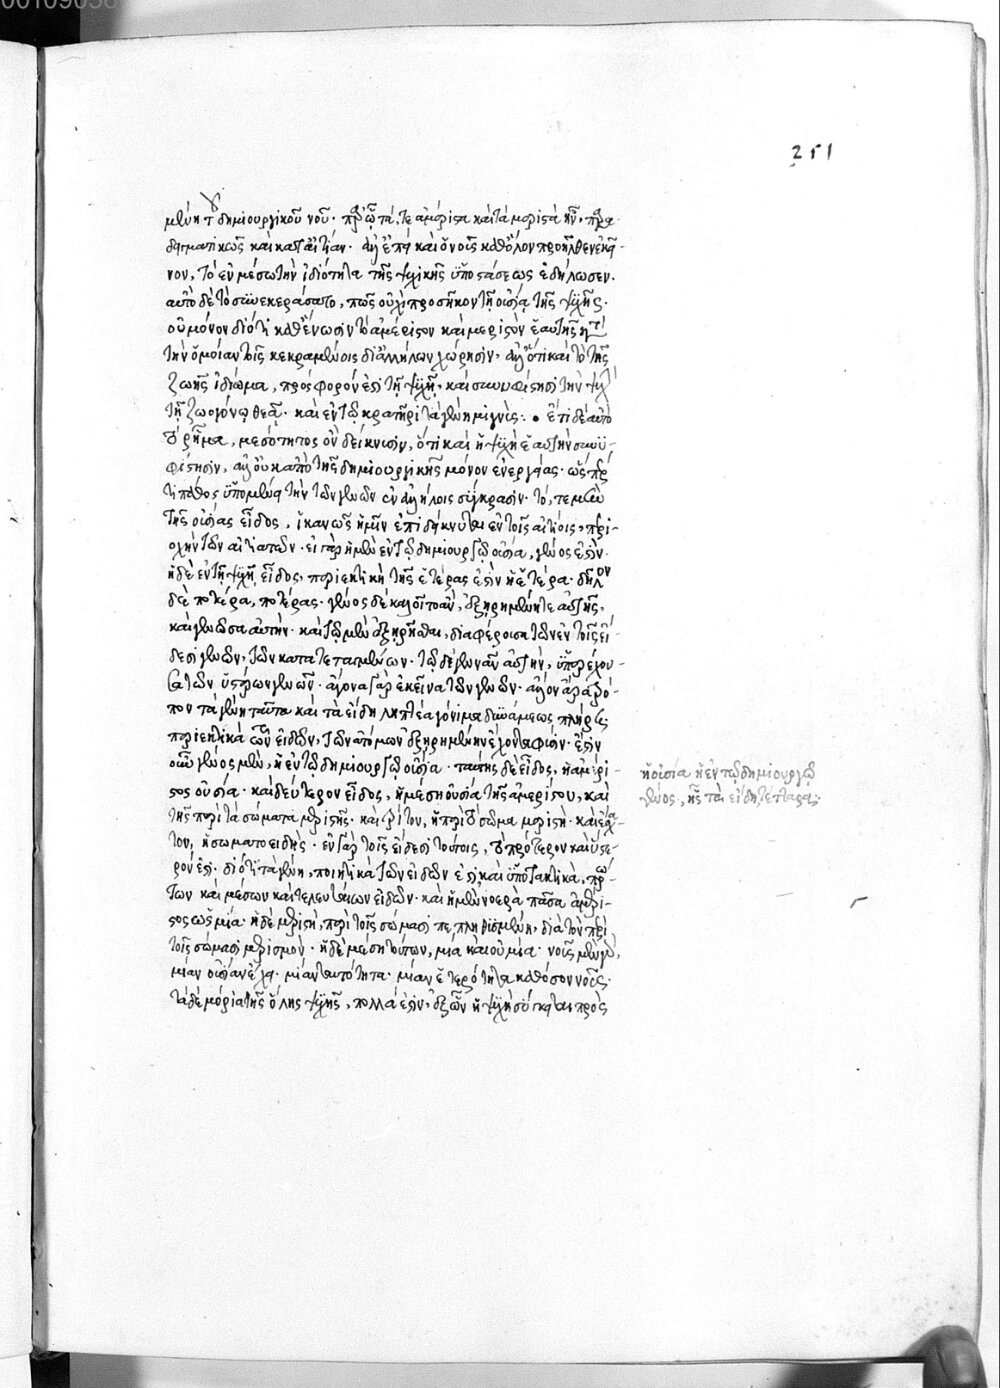 251
μένη τοῦ δημιουργικοῦ νοῦ· παρ' ᾧ τά τε ἀμέριστα καὶ τὰ μεριστὰ ἦν, παρα-
δειγματικῶς καὶ κατ' αἰτίαν. ἀλλ' ἐπεὶ καὶ ὁ νοῦς καθ' ὅλον προῆλθεν ἐκεῖ-
νον, τὸ ἐν μέσῳ τὴν ἰδιότητα τῆς ψυχικῆς ὑποστάσεως ἐδήλωσεν.
αὐτὸ δὲ τὸ συνεκεράσατο, πῶς οὐχὶ προσῆκον τῇ οὐσίᾳ τῆς ψυχῆς·
οὐ μόνον διότι καθ' ἕνωσιν τὸ ἀμέριστον καὶ μεριστὸν ἑαυτῆς
τὴν ὁμοίαν τοῖς κεκραμένοις δι' ἀλλήλων χώρησιν, ἀλλ' ὅτι καὶ τὸ τῆς
ζωῆς ἰδίωμα, πρόσφορόν ἐστι τῇ ψυχῇ, καὶ συνυφίστησι τὴν ψυχὴν
τῇ ζωογόνῳ θεᾷ· καὶ ἐν τῷ κρατῆρι τὰ γένη μιγνύς: • ἔτι δὲ αὐτὸ
τὸ ῥῆμα, μεσότητος ὂν δείκνυσιν, ὅτι καὶ ἡ ψυχὴ ἑαυτὴν συνυ-
φίστησιν, ἀλλ' οὐκ ἀπὸ τῆς δημιουργικῆς μόνον ἐνεργείας· ὥσπερ
τι πάθος ὑπομένει τὴν τῶν γενῶν ἐν ἀλλήλοις σύγκρασιν· τό, τε μὲν
τῆς οὐσίας εἶδος, ἱκανῶς ἡμῖν ἐπιδείκνυται ἐν τοῖς αἰτίοις, περι-
οχὴν τῶν αἰτιατῶν· εἰ γὰρ ἡ μὲν ἐν τῷ δημιουργῷ οὐσία, γένος ἐστὶν
ἡ δὲ ἐν τῇ ψυχῇ εἶδος, περιεκτικὴ τῆς ἑτέρας ἐστὶν ἡ ἑτέρα· δῆλον
δὲ ποτέρα, ποτέρας· γένος δὲ καλοῖτο ἄν, ἐξῃρημένη τε αὐτῆς,
καὶ γεννῶσα αὐτήν· καὶ τῷ μὲν ἐξῃρῆσθαι, διαφέρουσα τῶν ἐν τοῖς εἴ-
δεσι γενῶν, τῶν κατατεταγμένων· τῷ δὲ γεννᾶν αὐτήν, ὑπερέχου-
σα τῶν ὑστέρων γενῶν· ἄγονα γὰρ ἐκεῖνα τῶν γενῶν· ἀλλ' ὃν ἄρα τρό-
πον τὰ γένη ταῦτα καὶ τὰ εἴδη ληπτέα γόνιμα δυνάμεως πλήρη
περιεκτικὰ τῶν εἰδῶν, τῶν ἀτόμων ἐξῃρημένην ἔχοντα φύσιν· ἔστιν
οὖν γένος μὲν, ἡ ἐν τῷ δημιουργῷ οὐσία· ταύτης δὲ εἶδος, ἡ ἀμέρι-
στος οὐσία· καὶ δεύτερον εἶδος, ἡ μέση οὐσία τῆς ἀμερίστου, καὶ
τῆς περὶ τὰ σώματα μεριστῆς· καὶ τρίτον, ἡ περὶ τὸ σῶμα μεριστή· καὶ τέταρ-
τον, ἡ σωματοειδής· ἐν γὰρ τοῖς εἴδεσι τούτοις, τὸ πρότερον καὶ ὕστε-
ρόν ἐστι· διότι τὰ γένη, ποιητικὰ τῶν εἰδῶν ἐστι, καὶ ὑποτακτικά, πρώ-
των καὶ μέσων καὶ τελευταίων εἰδῶν· καὶ ἡ μὲν νοερὰ πᾶσα ἀμέρι-
στος ὡς μία· ἡ δὲ μεριστή, περὶ τοῖς σώμασι πεπληθυσμένη, διὰ τὸν περὶ
τοῖς σώμασι μερισμόν· ἡ δὲ μέση τούτων, μία καὶ οὐ μία· νοῦς μὲν γὰρ,
μίαν οὐσίαν ἔχει· μίαν ταυτότητα· μίαν ἑτερότητα καθόσον νοῦς·
τὰ δὲ μόρια τῆς ὅλης ψυχῆς, πολλά ἐστιν, ἐξ ὧν ἡ ψυχὴ σύγκειται πρὸς
ἡ οὐσία ἡ ἐν τῷ δημιουργῷ
γένος, ἧς τὰ εἴδη τέτταρα: